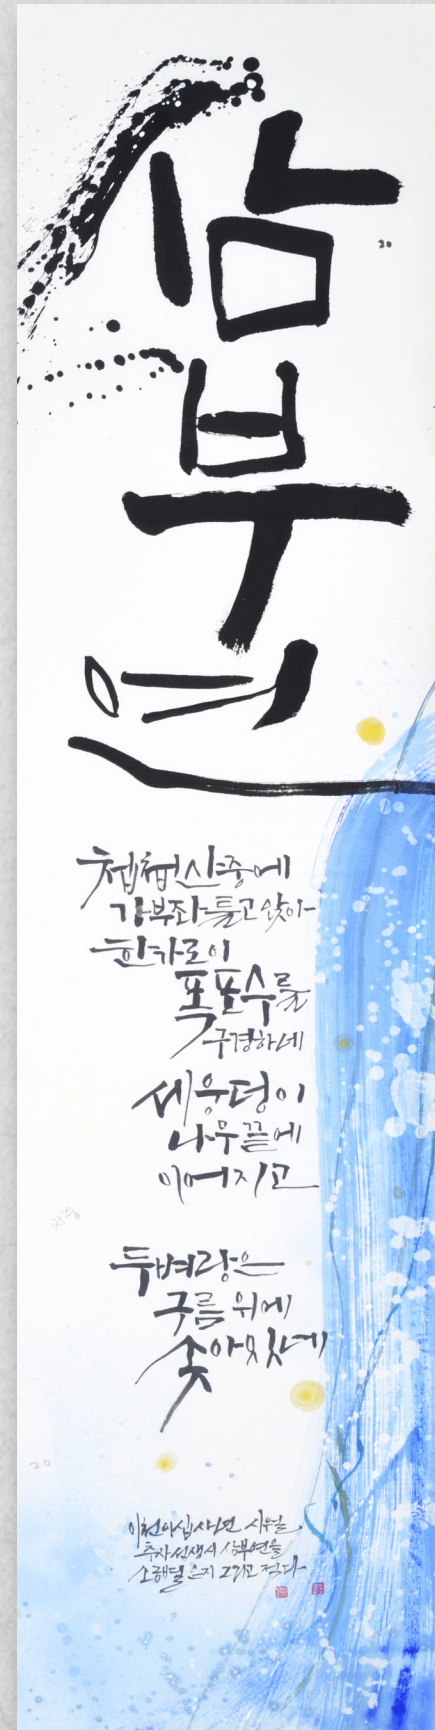 삼
부
연
첩첩산중에
가부좌 틀고 앉아
한가로이
폭포수를
구경하네
세 웅덩이
나무 끝에
이어지고
두 벼랑은
구름 위에
솟아있네
이천이십사년 시월
선생시 삼부연을
그리고 적다